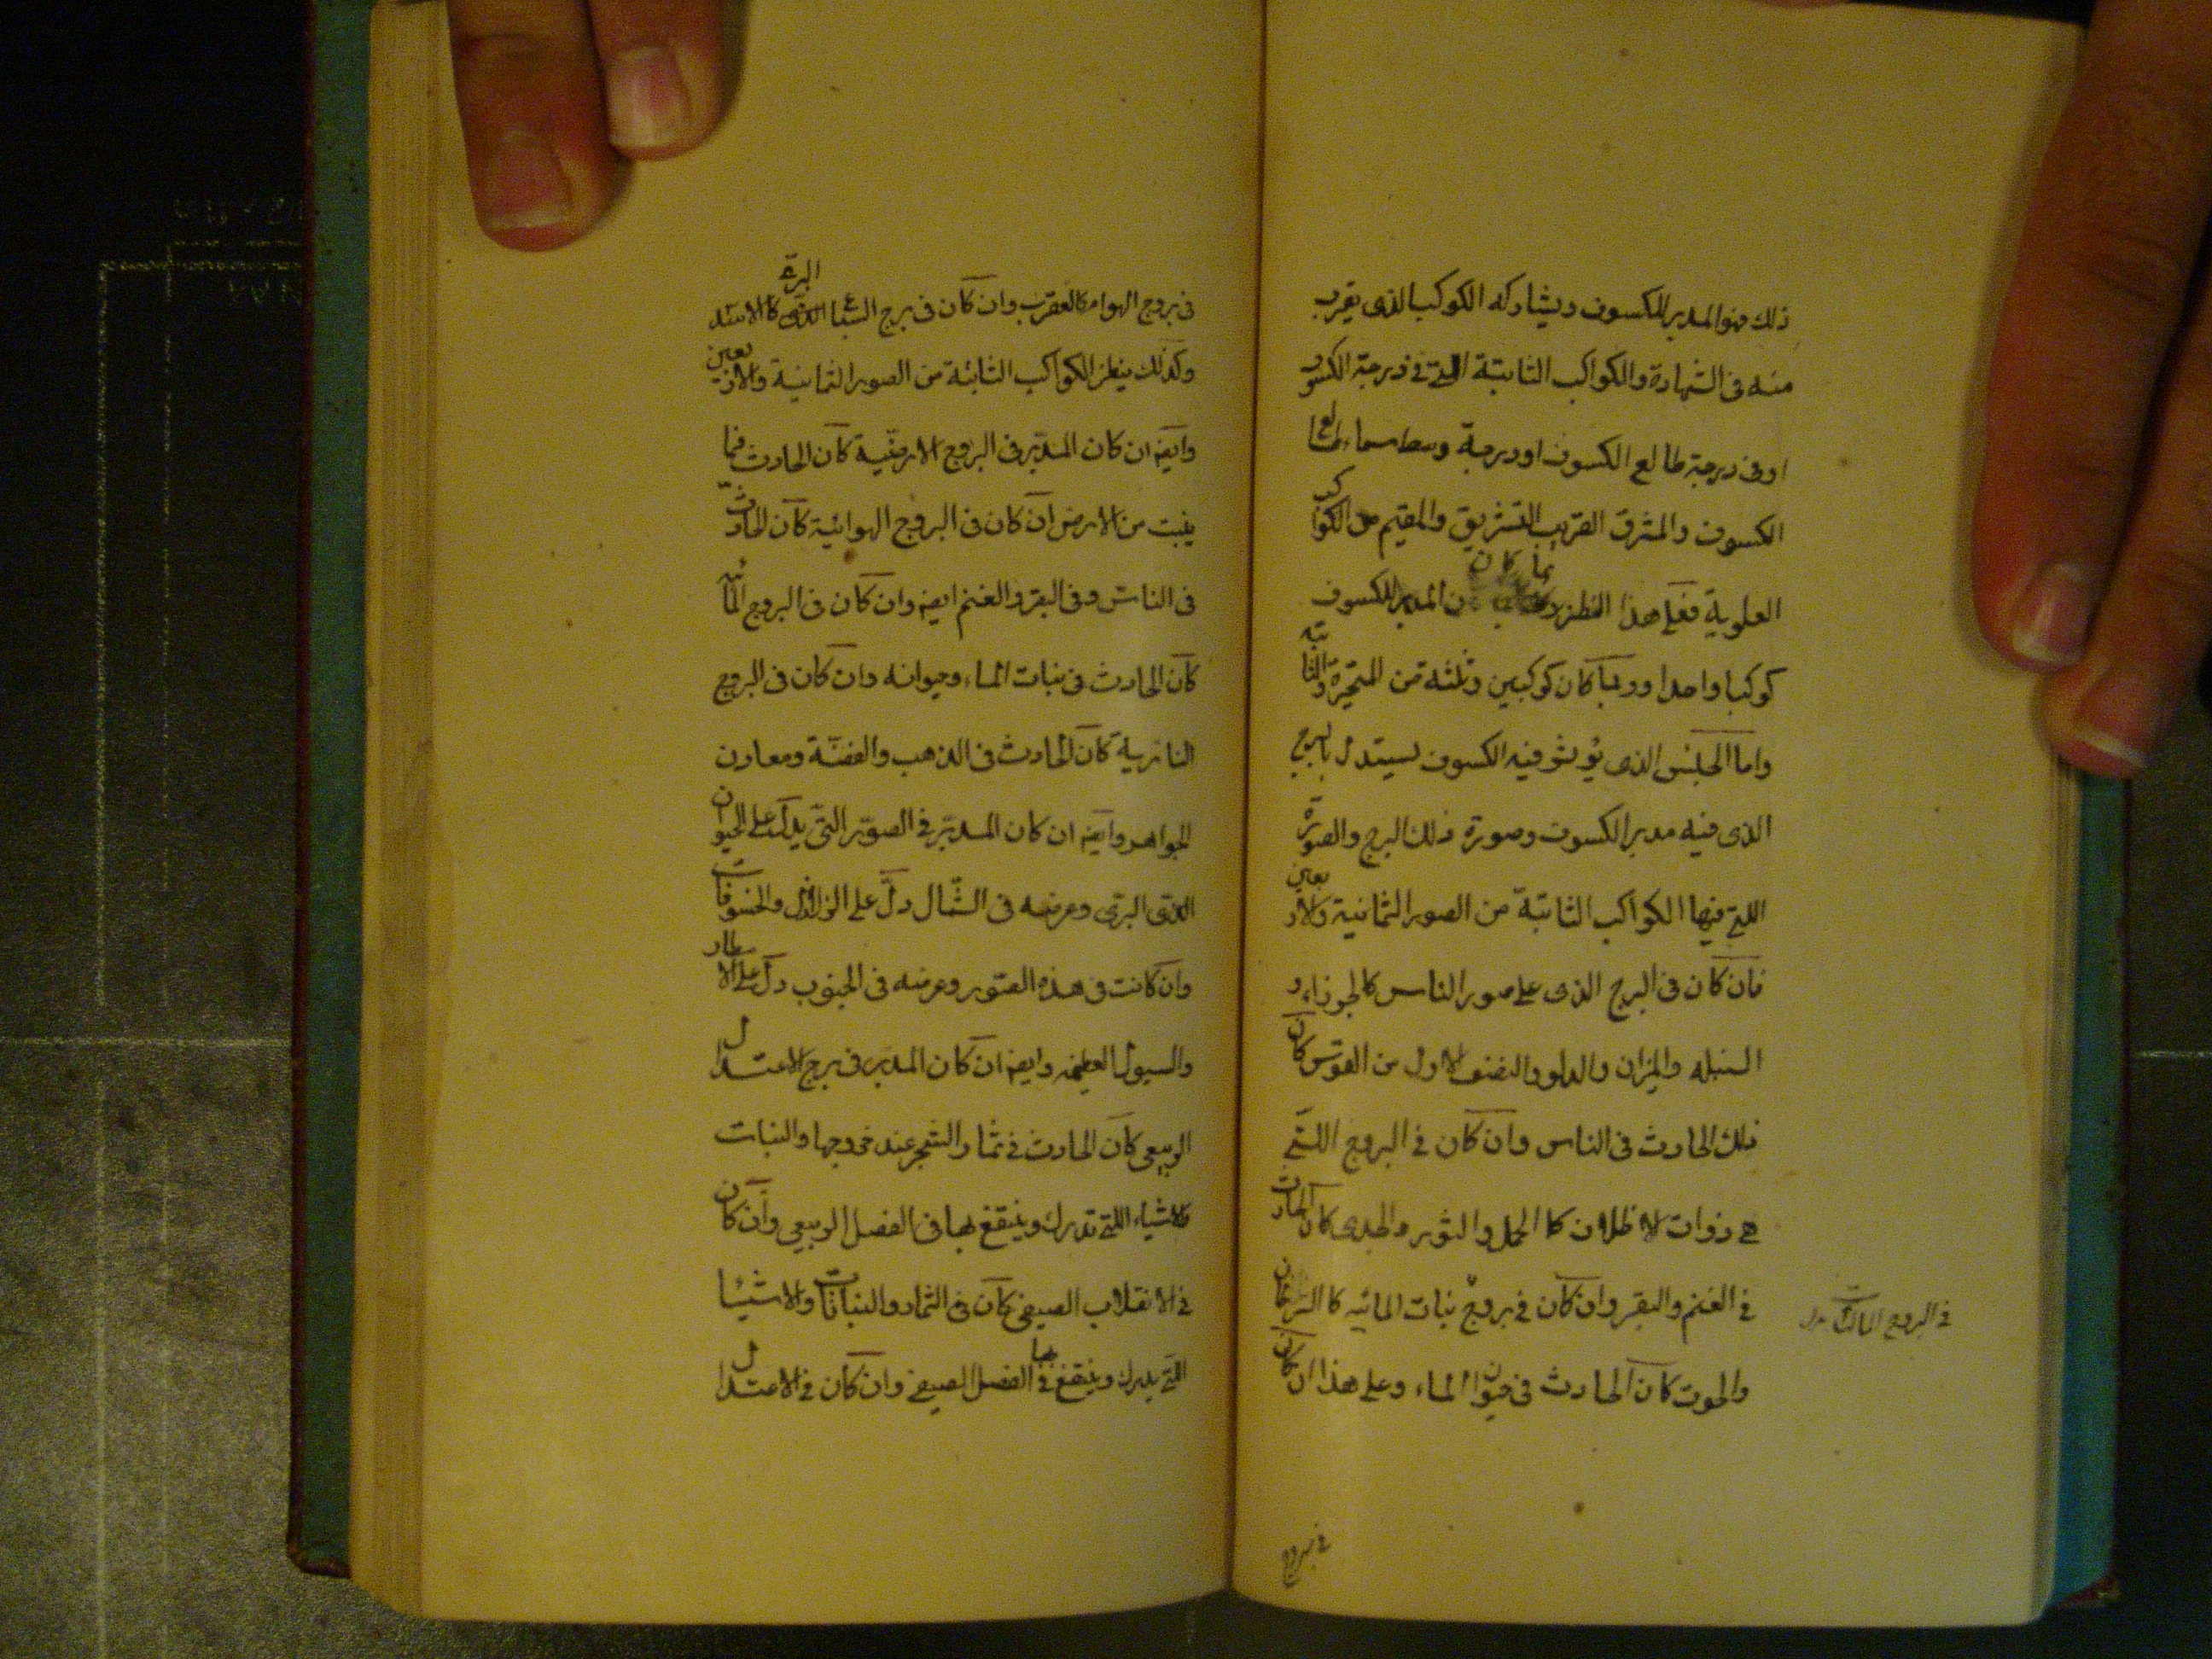 ذلك فهو المدبر للكسوف ويشاركه الكوكب الذى يقرب
منه فى الشهادة والكواكب الثابتة التى فى درجة الكسوف
او فى درجة طالع الكسوف او درجة وسط سماء طالع
الكسوف والمشرق القريب التشريق والمقيم من الكواكب
العلوية فعلى هذا النظر ربما كان المدبر للكسوف
كوكبا واحدا وربما كان كوكبين وثلثة من المتحيرة والثابتة
واما الجنس الذى يؤثر فيه الكسوف ليستدل بالبرج
الذى فيه مدبر الكسوف وصورة ذلك البرج والصورة
اللتى فيها الكواكب الثابتة من الصور الثمانية والاربعين
فان كان فى البرج الذى على صور الناس كالجوزاء و
السنبله والميزان والدلو والنصف الاول من القوس كان
ذلك الحادث فى الناس وان كان فى البروج اللتى
هى ذوات الاظلاف كا الحمل والثور والجدى كان الحادث
فى الغنم والبقر وان كان فى بروج بنات المائيه كا السرطان
والحوت كان الحادث فى حيوان الماء وعلى هذا ان كان
فى البروج
فى بروج
فى بروج الهوام كالعقرب وان كان فى برج السباع البرية كا الاسد
وكذلك ينظر الكواكب الثابتة من الصور الثمانية والاربعين
وايضا ان كان المدبر فى البروج الارضية كان الحادث فيما
ينبت من الارض ان كان فى البروج الهوائية كان الحادث
فى الناس وفى البقر والغنم ايضا وان كان فى البروج المائيه
كان الحادث فى نبات الماء وحيوانه وان كان فى البروج
النارية كان الحادث فى الذهب والفضة ومعادن
الجواهر وايضا ان كان المدبر فى الصور التى يدل على الحيوان
الذى البرى وعرضه فى الشمال دل على الزلازل والخسوفات
وان كانت فى هذه الصور وعرضه فى الجنوب دل على الامطار
والسيول العظيمه وايضا ان كان المدبر فى برج الاعتدال
الربيعى كان الحادث فى ثمار الشجر عند خروجها والنبات
والاشياء اللتى تدرك وينتفع بها فى الفصل الربيعى وان كان
فى الانقلاب الصيفى كان فى الثمار والنباتات والاشيا
اللتى يدرك وينتفع بها فى الفصل الصيفى وان كان فى الاعتدال